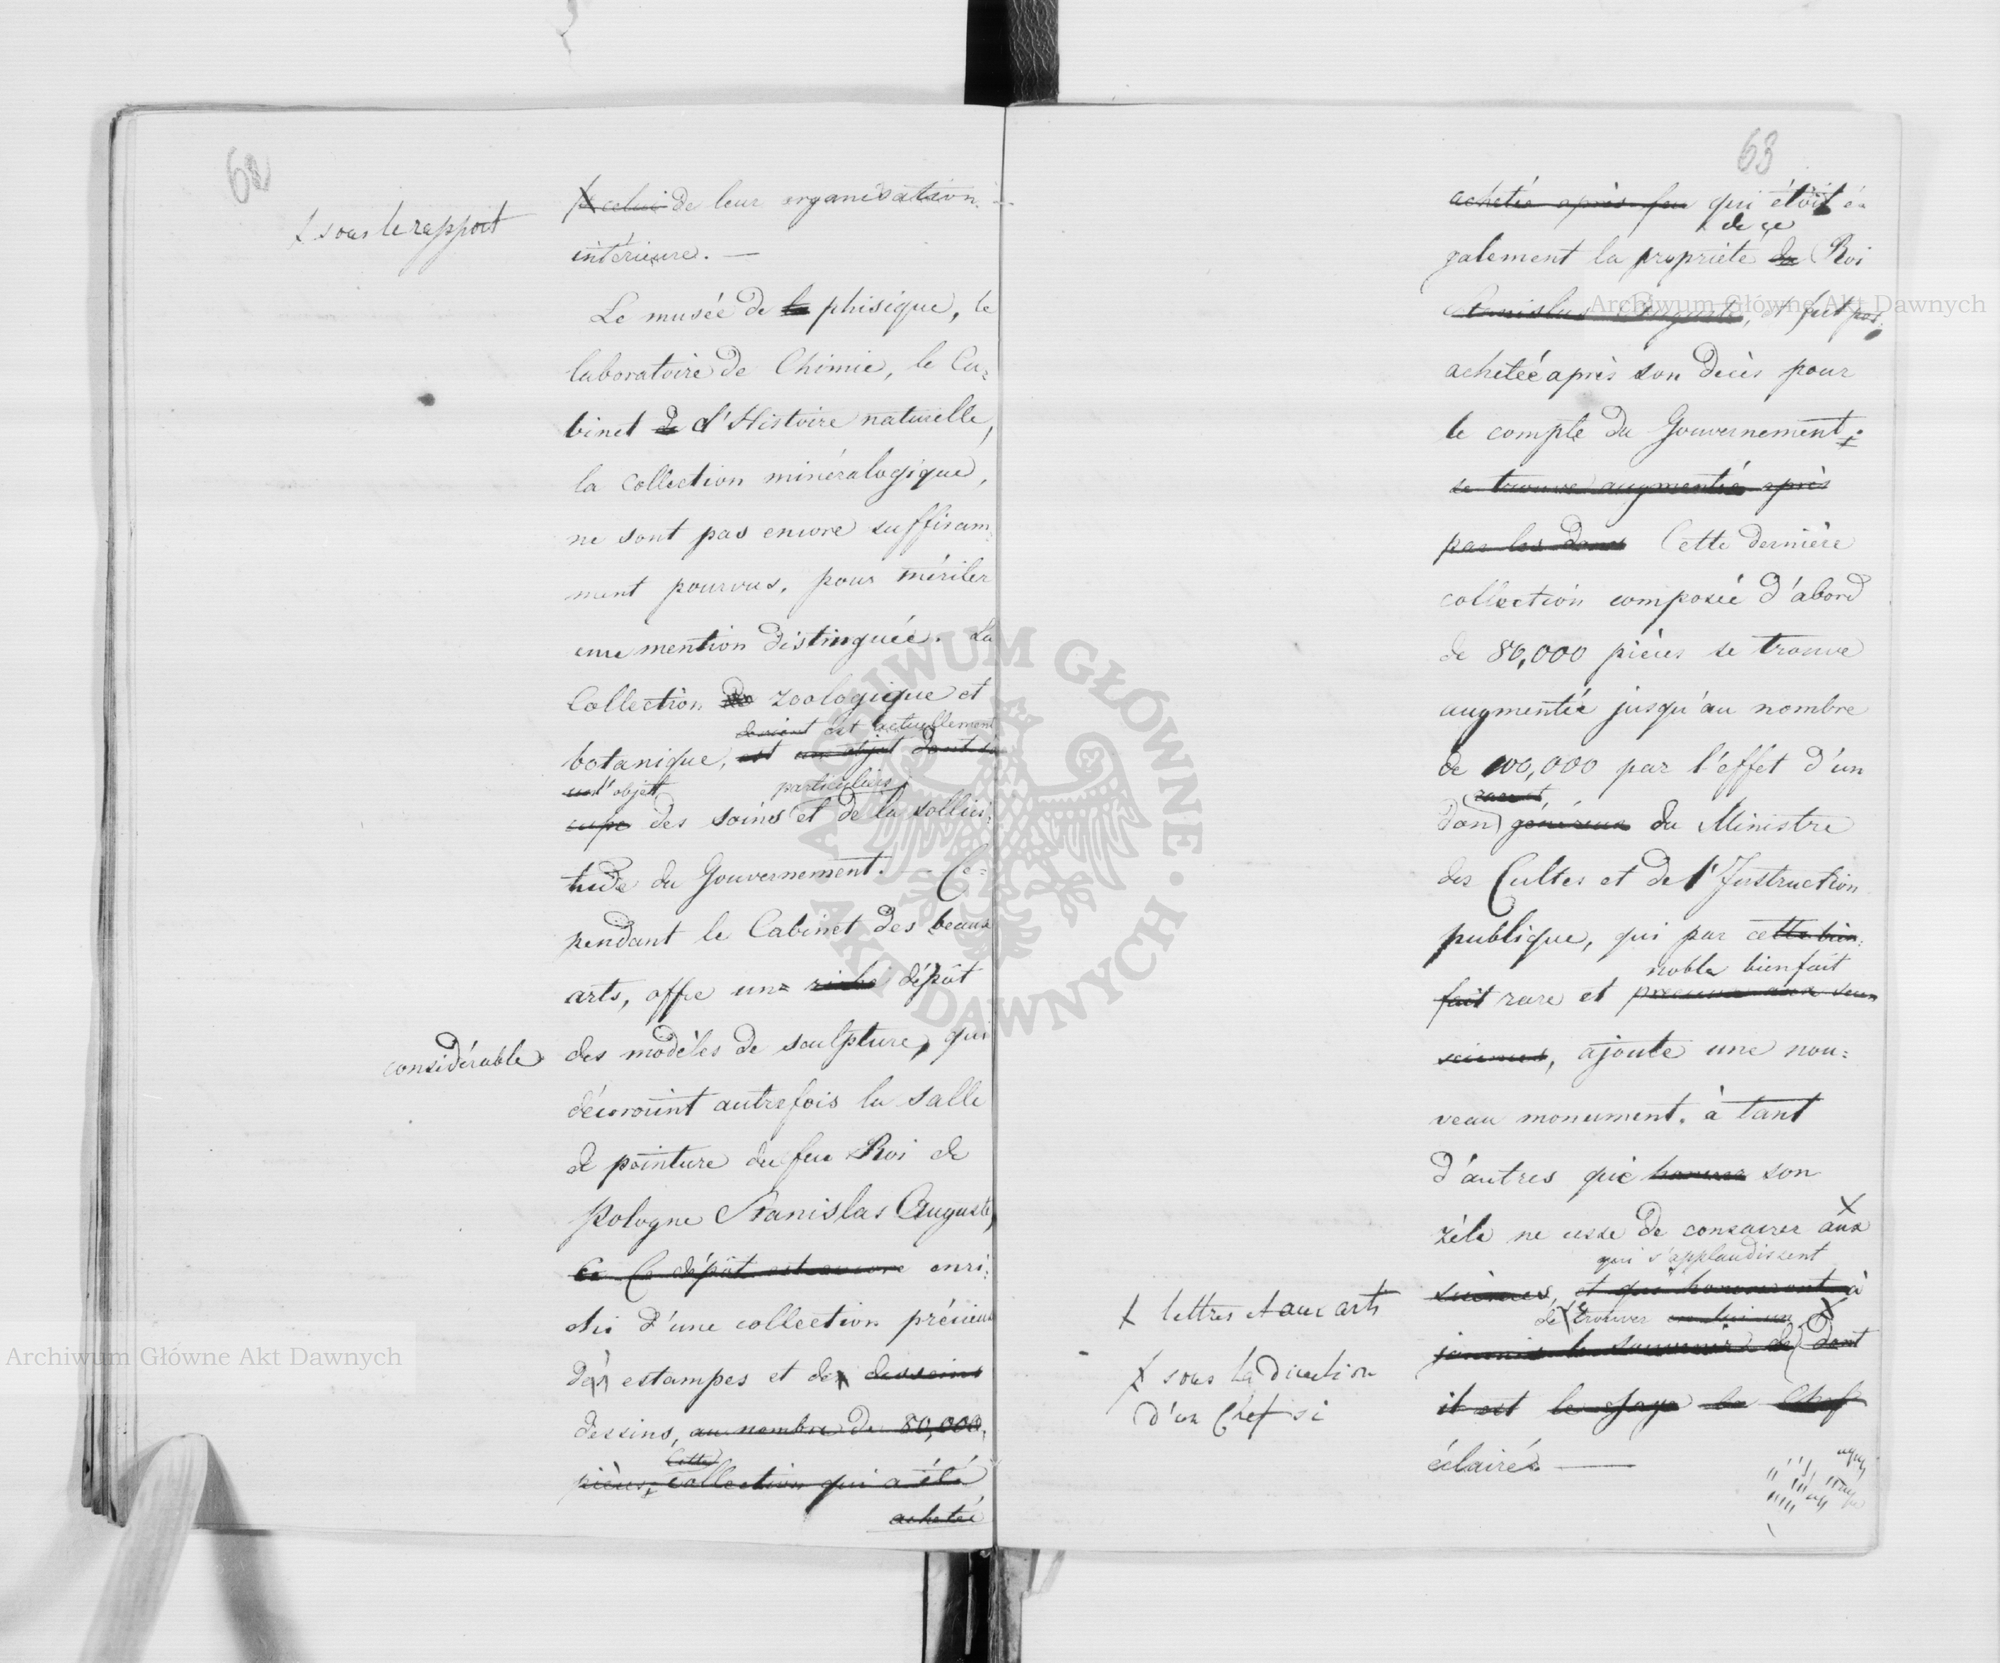 62
+ sous le rapport
+ celui de leur organisation
intérieure. —
Le musée de la phisique, le
laboratoire de Chimie, le Ca=
binet de d'Histoire naturelle,
la Collection minéralogique,
ne sont pas encore suffisam=
ment pourvus, pour mériter
une mention distinguée. La
Collection de zoologique et
devient est actuellement
botanique, est un objet dont s'oc
un l'objet particuliers
cupe des soins et de la sollici=
tude du Gouvernement. — Ce=
pendant le Cabinet des beaux
arts, offre un= riche dépôt
considérable
des modèles de sculpture, qui
décoroient autrefois la salle
de peinture du feu Roi de
Pologne Stanislas Auguste,
Ce dépôt est encore enri=
chi d'une collection précieuse
d' estampes et de desseins
dessins, au nombre de 80,000
Cette
pièces, collection qui a été
acheté
63
achetée après feu qui étoit é=
de ce
galement la propriété du Roi
Stanislas Auguste, et fut
achetée après son décès pour
le compte du Gouvernement.
se trouve augmentée après
par les dons Cette dernière
collection composée d'abord
de 80,000 pièces se trouve
augmentée jusqu'au nombre
de 100,000 par l'effet d'un
rare et
don généreux du Ministre
des Cultes et de l'Instruction
publique, qui par cette bien=
noble bienfait
fait rare et précieux aux
sciences, ajoute une nou=
veau monument, à tant
d'autres que son
zèle ne cesse de consacrer aux
qui s'applaudissent
sciences, et qui honoreront à
+ lettres et aux arts
de trouver en lui un
jamais le souvenir de dont
+ sous la direction
d'un Chef si
il est le sage Chef
éclairé. —
Archiwum Główne Akt Dawnych
Archiwum Główne Akt Dawnych
ARCHIWUM GŁÓWNE · AKT DAWNYCH ·